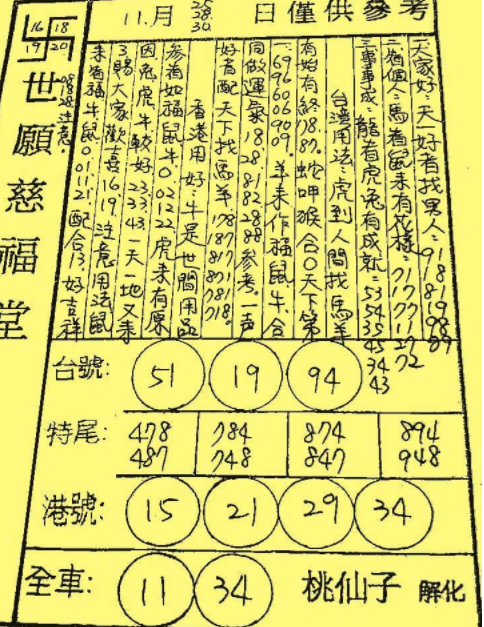 11.月 25 28 30 日僅供參考
16 18
卐
19 20
08.28.注意.
世願慈福堂
大家好:天一好者找男人=91 18 81 19 98 89
二.有個人=馬看鼠未有花樣=71 17 77 11 27 72
三.事事成=龍看虎兔有成就=53 54 35 45 34 43
台灣用法=虎到人間找馬羊
有始有終78.87.蛇呷猴合0天下第
一69 96 06 60 90 09.羊未作福鼠牛.合
同做運氣18 28 81 82 28 88 參考.一声
好者配天下找馬羊
香港用好=牛是世間用品
參者如福鼠牛0.02 12 22虎未有原
因兔虎牛較好23 33 43一天一地又來
3賜大家歡喜16 19注意用法鼠
未有福牛鼠0.01 12配合13好吉祥
台號: 51 19 94
特尾: 478 784 874 894
487 748 847 948
港號: 15 21 29 34
全車: 11 34 桃仙子 解化